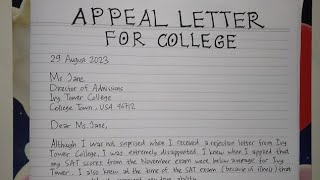 APPEAL LETTER
FOR COLLEGE
29 August 2023
Ms. Jane
Director of Admissions
Ivy Tower College
College Town, USA 46712
Dear Ms. Jane,
Although I was not surprised when I received a rejection letter from Ivy
Tower College, I was extremely disappointed. I knew when I applied that
my SAT scores from the November exam were below average for Ivy
Tower. I also knew at the time of the SAT exam (because of illness) that